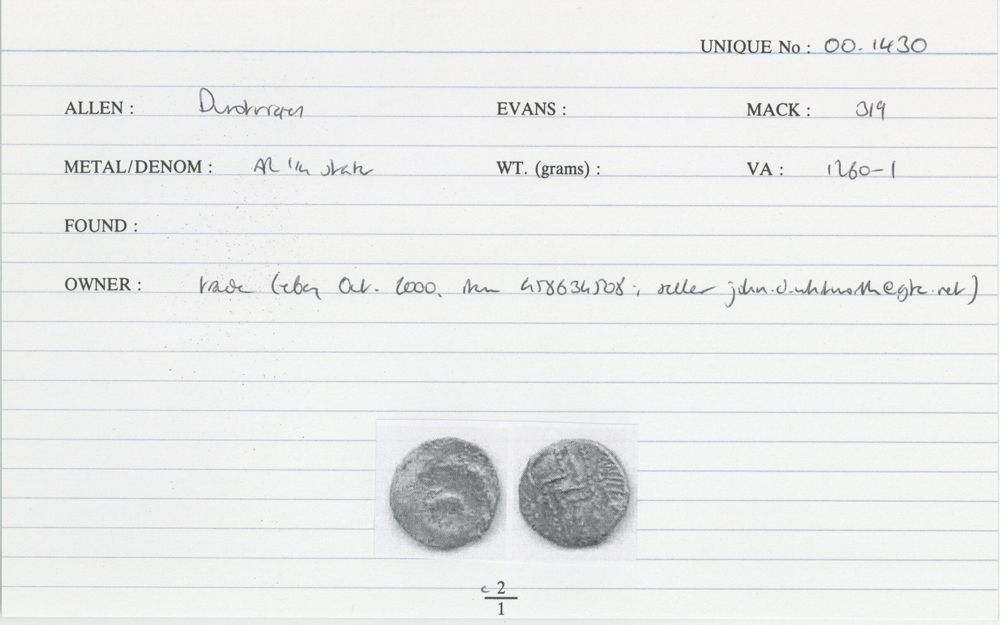 UNIQUE No : 00.1430
ALLEN : Durotrigan EVANS : MACK : 319
METAL/DENOM : AR 1/4 stater WT. (grams) : VA : 1260-1
FOUND :
OWNER : trade (eBay Oct. 2000, item 458634508; seller
c 2
1